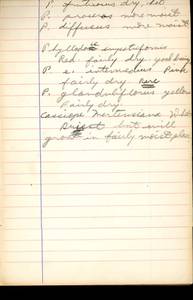 P. fruticosus dry, hot
P. more moist
P. diffusus more moist
Phyllodoce empetriformis
Red fairly dry
P. e. intermedius Pink
fairly dry Rare
P. glanduliflorus yellow
Fairly dry.
Cassiope Mertensiana White
but will
grow in fairly moist place